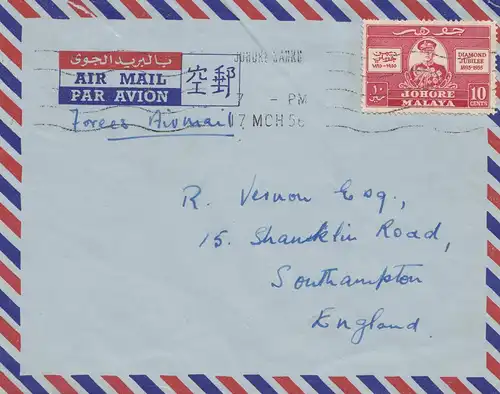 بالبريد الجوى
AIR MAIL
PAR AVION
空郵
Forces Airmail
JOHORE BAHRU
7 - PM
7 MCH 56
جوهر
DIAMOND
JUBILEE
1895-1955
JOHORE
MALAYA
10
CENTS
R. Vernon Esq.,
15. Shanklin Road,
Southampton
England.